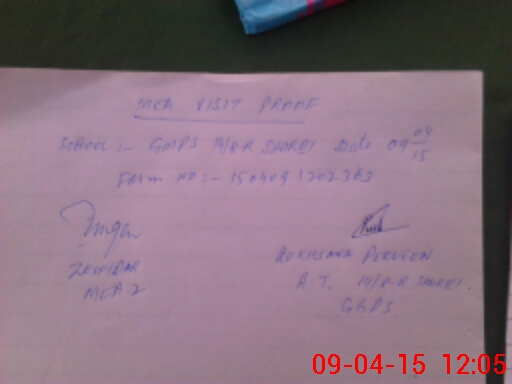 MEA VISIT PROOF
SCHOOL :- GMPS M/O-R SHOREI Date 09 04/15
Form NO :- 150409 1202363
ZULFIQAR
MEA 2
RUKHSANA PERVEEN
A.T. M/O-R SHOREI
GGPS
09-04-15 12:05